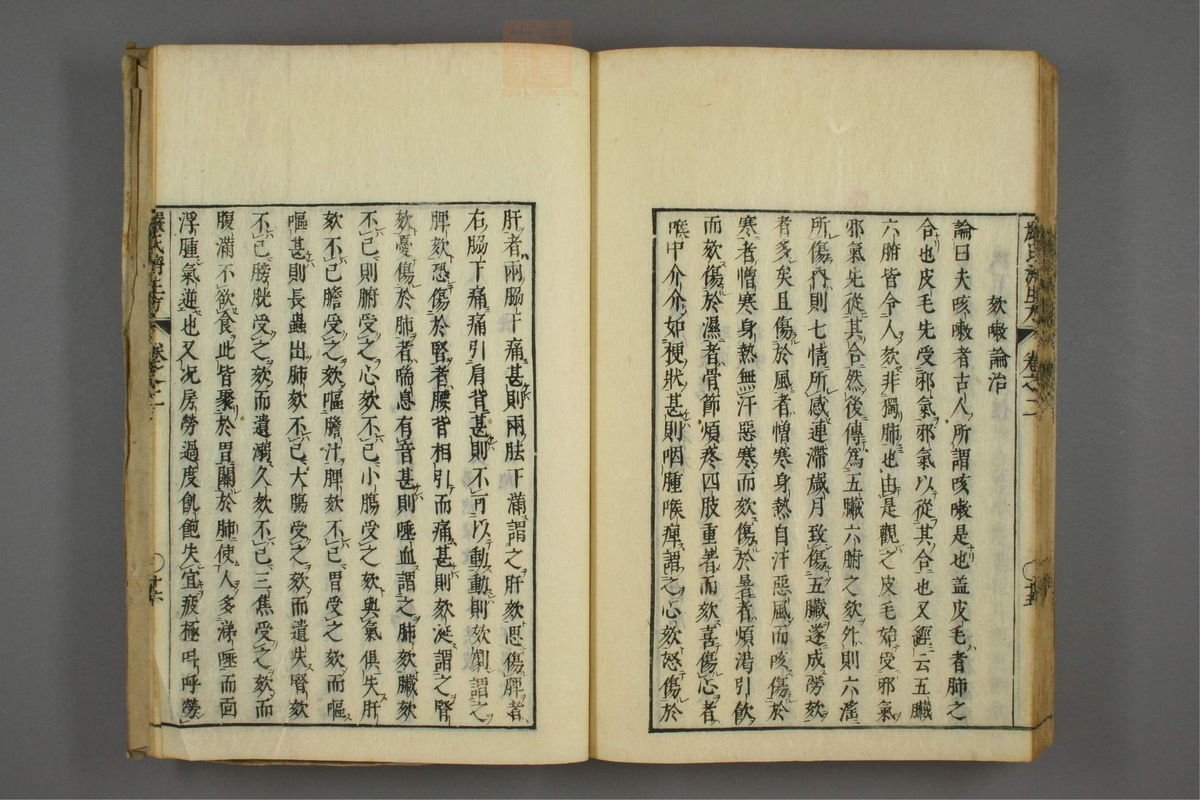 嚴氏濟生方 卷之二 〇廿五
欬嗽論治
論曰夫咳嗽者古人所謂咳嗽是也盖皮毛者肺之
合也皮毛先受邪氣邪氣以從其合也又經云五臟
六腑皆令人欬非獨肺也由是觀之皮毛始受邪氣
邪氣先從其合然後傳為五臟六腑之欬外則六淫
所傷內則七情所感連滯歲月致傷五臟遂成勞欬
者多矣且傷於風者憎寒身熱自汗惡風而咳傷於
寒者憎寒身熱無汗惡寒而欬傷於暑者煩渴引飲
而欬傷於濕者骨節煩疼四肢重著而欬喜傷心者
喉中介介如梗狀甚則咽腫喉痺謂之心欬怒傷於
肝者兩脇下痛甚則兩胠下滿謂之肝欬思傷脾者
右脇下痛痛引肩背甚則不可以動動則欬劇謂之
脾欬恐傷於腎者腰背相引而痛甚則欬涎謂之腎
欬憂傷於肺者喘息有音甚則唾血謂之肺欬臟欬
不已則腑受之心欬不已小膓受之欬與氣俱失肝
欬不已膽受之欬嘔膽汁脾欬不已胃受之欬而嘔
嘔甚則長蟲出肺欬不已大膓受之欬而遺失腎欬
不已膀胱受之欬而遺溺久欬不已三焦受之欬而
腹滿不欲食此皆聚於胃關於肺使人多涕唾而面
浮腫氣逆也又况房勞過度飢飽失宜疲極呌呼勞
嚴氏濟生方 卷之二 〇廿六